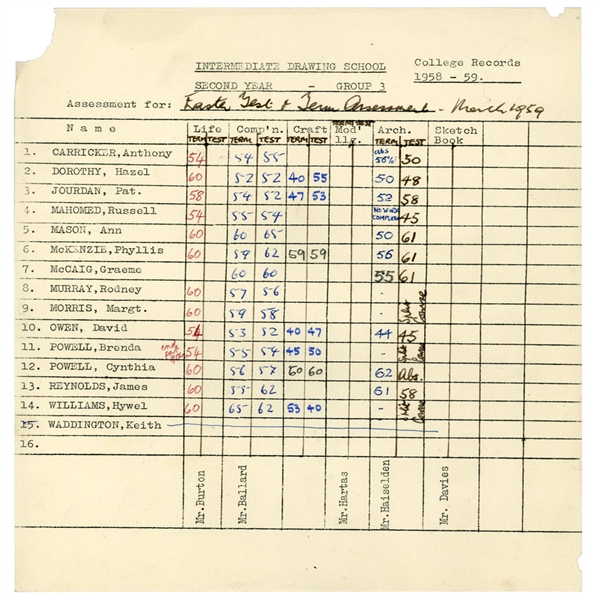 INTERMEDIATE DRAWING SCHOOL College Records
1958 - 59.
SECOND YEAR - GROUP 3
Assessment for: Easter Test & Term Assessment - March 1959
Name Life Comp'n. Craft Mod'llg. Arch. Sketch Book
TERM TEST TERM TEST TERM TEST TERM TEST TERM TEST
1. CARRICKER, Anthony 54 54 55 abs 56% 50
2. DOROTHY, Hazel 60 52 52 40 55 50 48
3. JOURDAN, Pat. 58 54 52 47 53 52 58
4. MAHOMED, Russell 54 55 54 NO WORK COMPLETE 45
5. MASON, Ann 60 60 65 50 61
6. McKENZIE, Phyllis 60 59 62 59 59 56 61
7. McCAIG, Graeme 60 60 55 61
8. MURRAY, Rodney 60 57 56 -
9. MORRIS, Margt. 60 59 58 - Split Course
10. OWEN, David 54 53 52 40 47 44 45
11. POWELL, Brenda 54 55 54 45 50 - Split Course
12. POWELL, Cynthia 60 56 57 60 60 62 Abs.
13. REYNOLDS, James 60 55 62 61 58
14. WILLIAMS, Hywel 60 65 62 53 40 - Split Course
15. WADDINGTON, Keith
16.
Mr. Burton Mr. Ballard Mr. Hartas Mr. Haiselden Mr. Davies